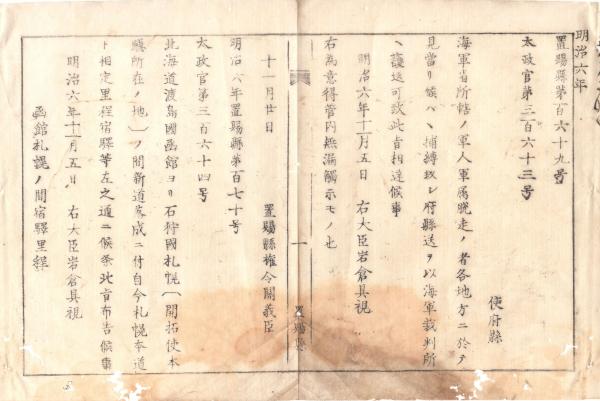 明治六年
置賜縣第百六十九号
太政官第三百六十三号
使府縣
海軍省所轄ノ軍人軍属脱走ノ者各地方ニ於テ
見當リ候ハヽ捕縛致シ府縣送ヲ以海軍裁判所
ヘ護送可致此旨相達候事
明治六年十一月五日 右大臣岩倉具視
右為意得管内無漏觸示モノ也
十一月廿日 置賜縣權令關義臣
一
置賜縣
明治六年置賜縣第百七十号
太政官第三百六十四号
北海道渡島國函館ヨリ石狩國札幌〔開拓使本
廳所在ノ地〕ノ間新道落成ニ付自今札幌本道
ト相定里程宿驛等左之通ニ候条此旨布告候事
明治六年十一月五日 右大臣岩倉具視
函館札幌ノ間宿驛里程